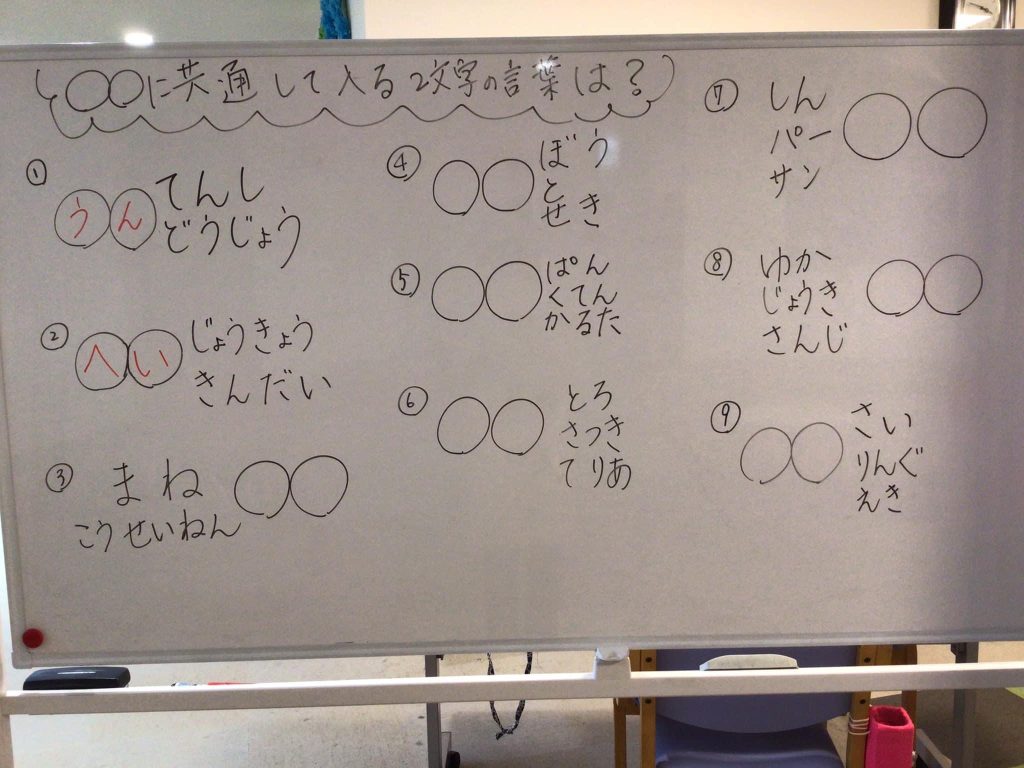 ○○に共通して入る2文字の言葉は?
①
うん てんし
どうじょう
②
へい じょうきょう
きんだい
③
まね ○○
こうせいねん
④
○○ ぼう
と
せき
⑤
○○ ぱん
くてん
かるた
⑥
○○ とろ
さっき
てりあ
⑦
しん ○○
パー
サン
⑧
ゆか ○○
じょうき
さんじ
⑨
○○ さい
りんぐ
えき